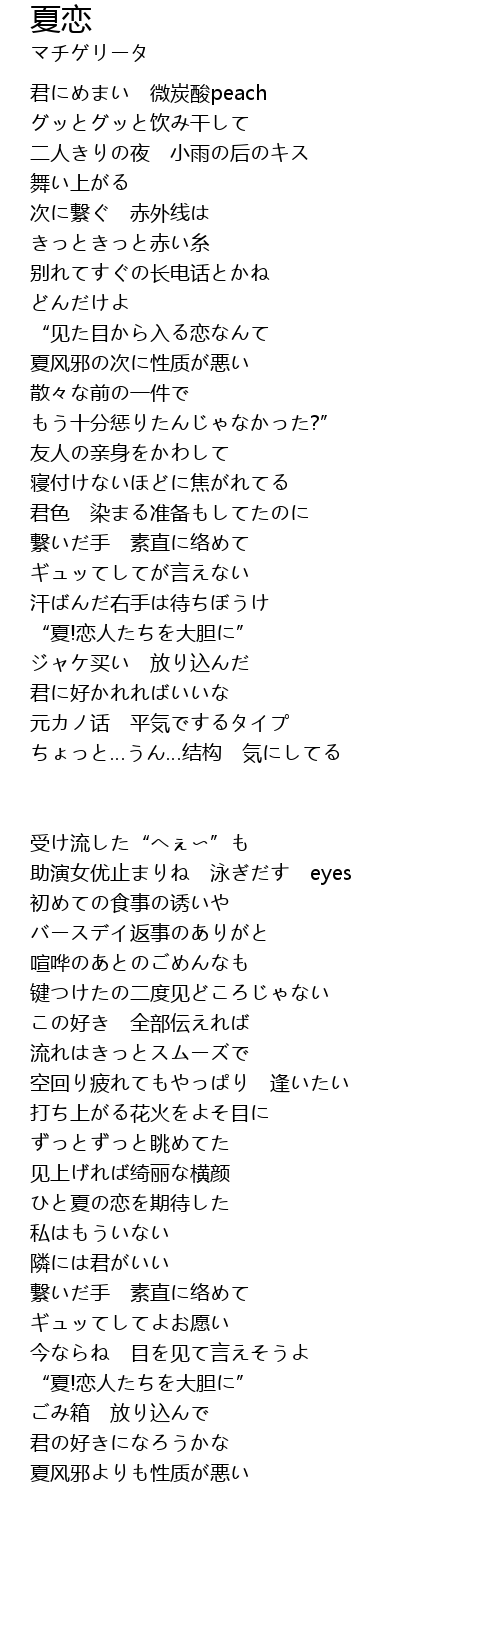 夏恋
マチゲリータ
君にめまい　微炭酸peach
グッとグッと饮み干して
二人きりの夜　小雨の后のキス
舞い上がる
次に繋ぐ　赤外线は
きっときっと赤い糸
别れてすぐの长电话とかね
どんだけよ
“见た目から入る恋なんて
夏风邪の次に性质が悪い
散々な前の一件で
もう十分惩りたんじゃなかった?”
友人の亲身をかわして
寝付けないほどに焦がれてる
君色　染まる准备もしてたのに
繋いだ手　素直に络めて
ギュッてしてが言えない
汗ばんだ右手は待ちぼうけ
“夏!恋人たちを大胆に”
ジャケ买い　放り込んだ
君に好かれればいいな
元カノ话　平気でするタイプ
ちょっと...うん...结构　気にしてる
受け流した“へぇ〜”も
助演女优止まりね　泳ぎだす　eyes
初めての食事の诱いや
バースデイ返事のありがと
喧哗のあとのごめんなも
键つけたの二度见どころじゃない
この好き　全部伝えれば
流れはきっとスムーズで
空回り疲れてもやっぱり　逢いたい
打ち上がる花火をよそ目に
ずっとずっと眺めてた
见上げれば绮丽な横颜
ひと夏の恋を期待した
私はもういない
隣には君がいい
繋いだ手　素直に络めて
ギュッてしてよお愿い
今ならね　目を见て言えそうよ
“夏!恋人たちを大胆に”
ごみ箱　放り込んで
君の好きになろうかな
夏风邪よりも性质が悪い